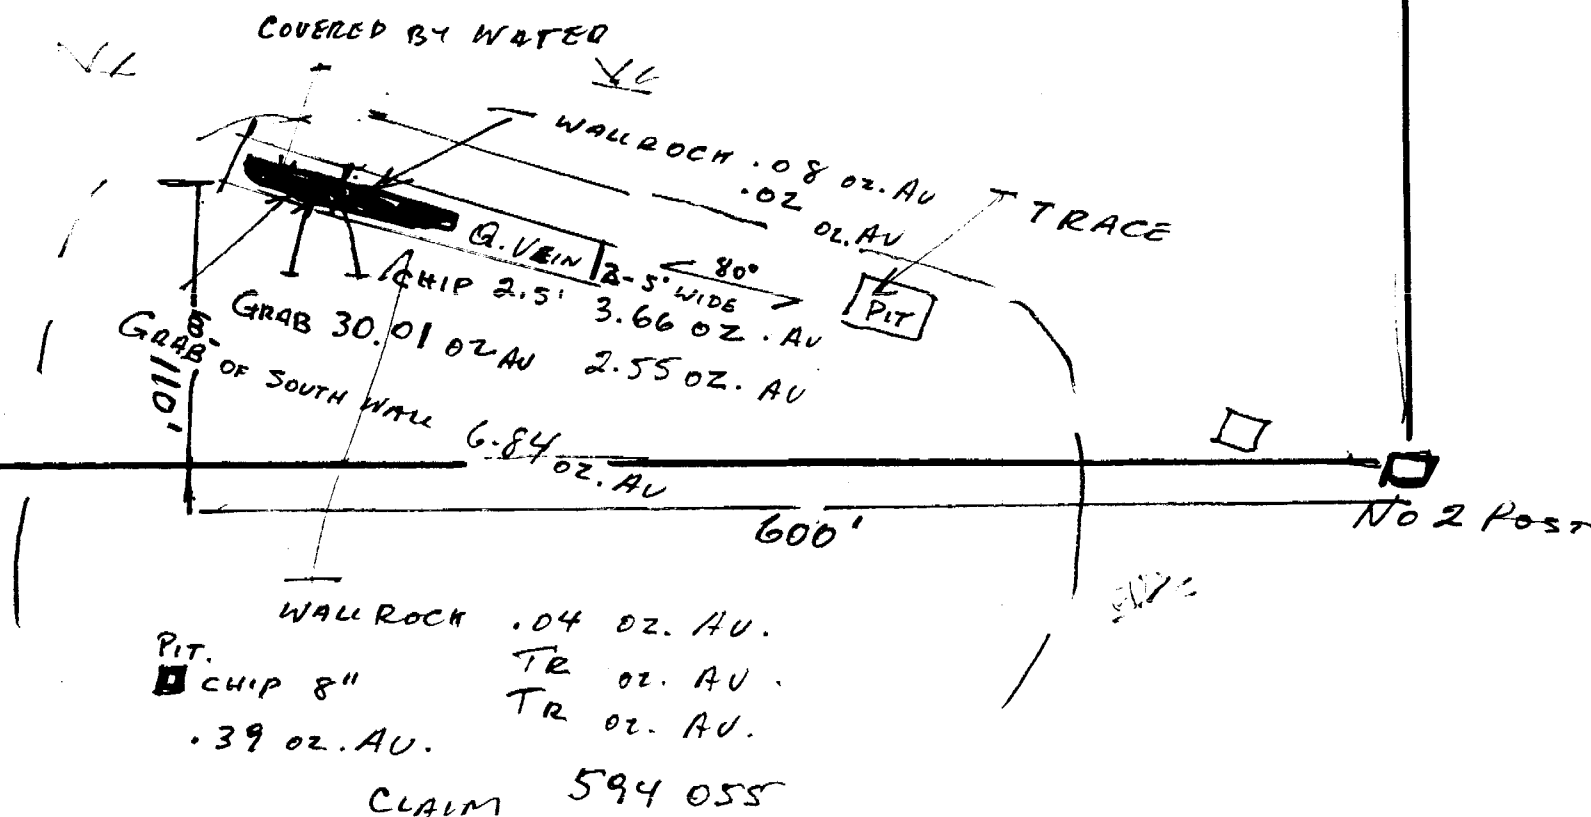 COVERED BY WATER
WALLROCK .08 OZ. AU
.02 OZ. AU
TRACE
Q. VEIN
2-5' WIDE
80°
PIT
CHIP 2.5' 3.66 OZ. AU
GRAB 30.01 OZ AU 2.55 OZ. AU
GRAB OF SOUTH WALL 6.84 OZ. AU
110'
600'
NO 2 POST
WALLROCK .04 OZ. AU.
TR OZ. AU.
TR OZ. AU.
PIT.
CHIP 8"
.39 OZ. AU.
CLAIM 594 055